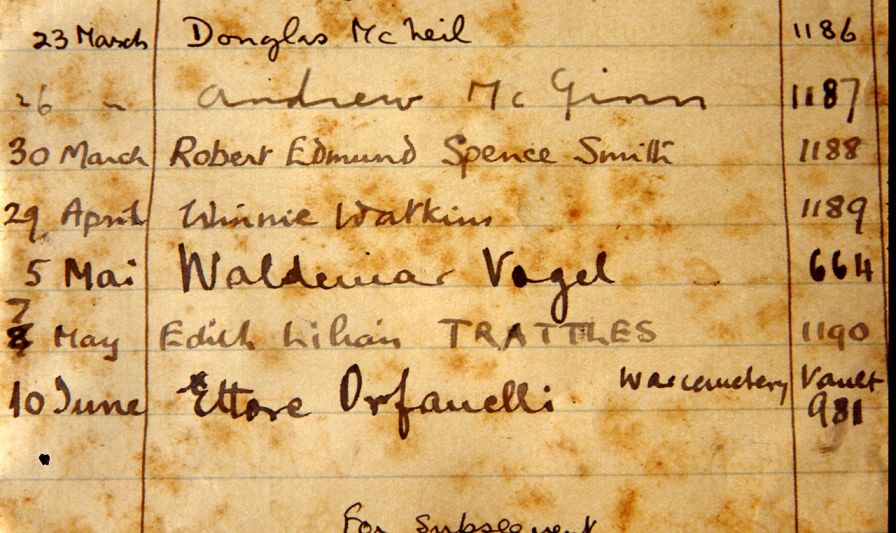 23 March Donglas McNeil 1186
26 " Andrew McGinn 1187
30 March Robert Edmund Spence Smith 1188
29 April Winnie Watkins 1189
5 Mai Waldemar Vogel 664
7
8 May Edith Lilian TRATTLES 1190
10 June Ettore Orfanelli Warcemetery Vault
981
For Subsequent